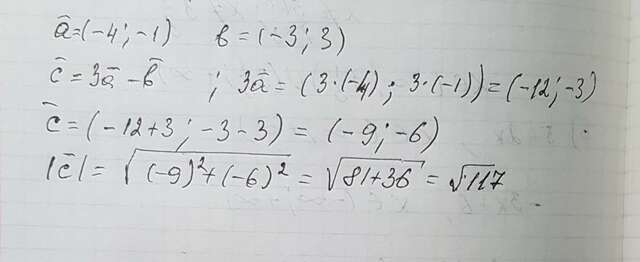 ā=(-4;-1) в=(-3;3)
c̄=3ā-в̄ ; 3ā=(3·(-4); 3·(-1))=(-12;-3)
c̄=(-12+3; -3-3)=(-9;-6)
|c̄|=√(-9)²+(-6)²=√81+36=√117